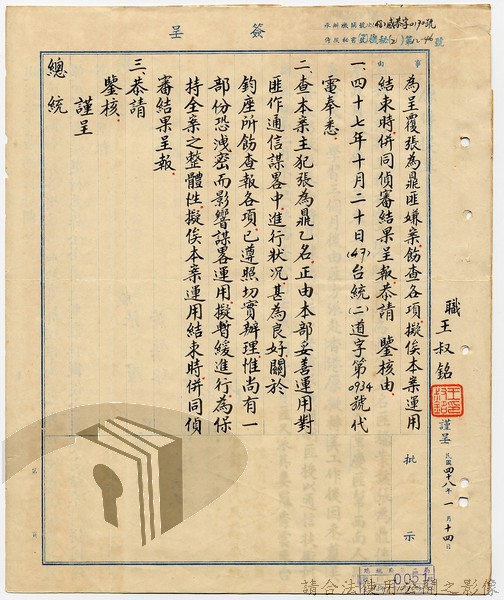 簽呈
承辦機關號次(48)威恭字0190號
侍從秘書室機秘(乙)第12-46號
事由
為呈覆張為鼎匪嫌案飭查各項擬俟本案運用
結束時併同偵審結果呈報恭請 鑒核由
一、四十七年十月二十日(47)台統(二)道字第0934號代
電奉悉
二、查本案主犯張為鼎乙名正由本部妥善運用對
匪作通信謀畧中進行狀況甚為良好關於
鈞座所飭查報各項已遵照切實辦理惟尚有一
部份恐洩密而影響謀畧運用擬暫緩進行為保
持全案之整體性擬俟本案運用結束時併同偵
審結果呈報
三、恭請
鑒核
謹呈
總統
職 王叔銘 謹呈
民國四十八年一月十四日
批示
第 頁
0051
請合法使用公開之影像